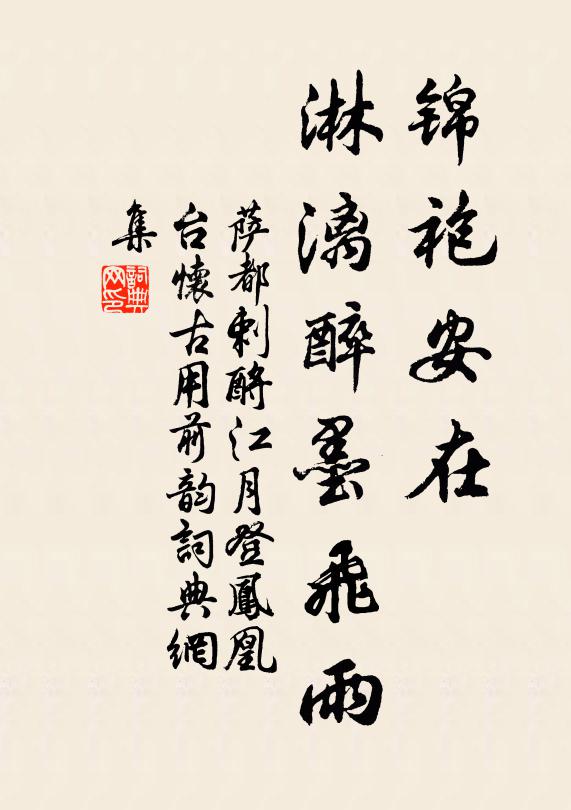 锦袍安在
淋漓醉墨飞雨
萨都剌酹江月登鳳凰
台懷古用前韵詞典網
集
詞典网印